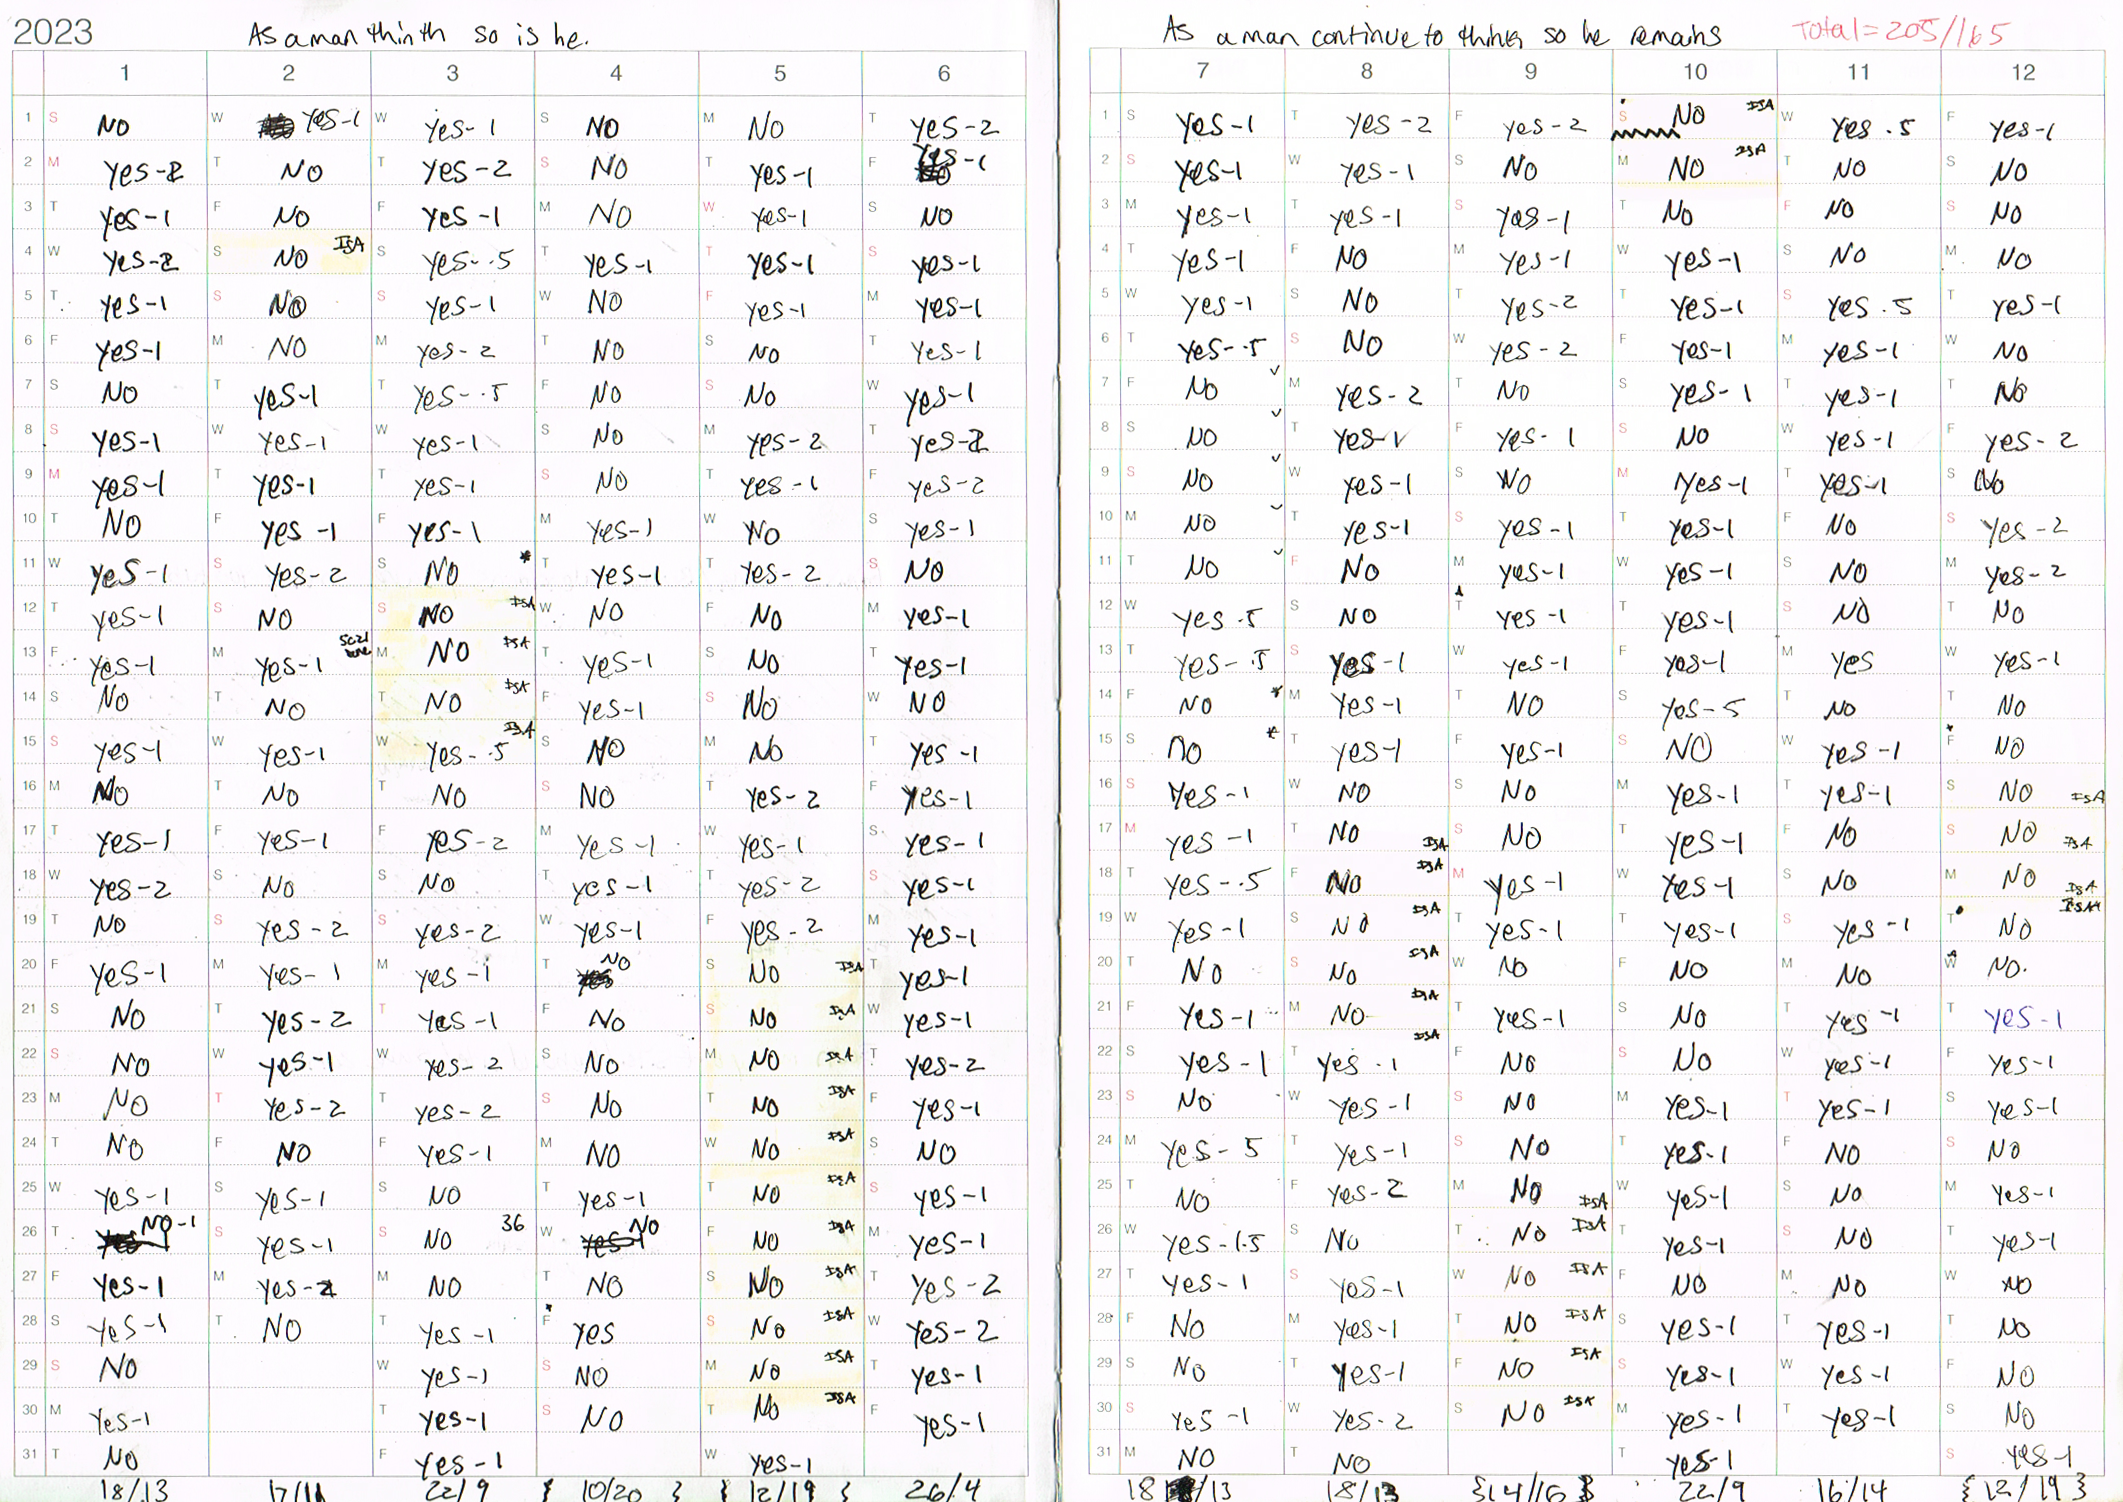 2023 As a man thinth so is he.
1 2 3 4 5 6
1 S NO W Yes-1 W Yes-1 S NO M NO T Yes-2
2 M Yes-2 T NO T Yes-2 S NO T Yes-1 F Yes-1
3 T Yes-1 F NO F Yes-1 M NO W Yes-1 S NO
4 W Yes-2 S NO ISA S Yes-.5 T Yes-1 T Yes-1 S Yes-1
5 T Yes-1 S NO S Yes-1 W NO F Yes-1 M Yes-1
6 F Yes-1 M NO M Yes-2 T NO S NO T Yes-1
7 S NO T Yes-1 T Yes-.5 F NO S NO W Yes-1
8 S Yes-1 W Yes-1 W Yes-1 S NO M Yes-2 T Yes-2
9 M Yes-1 T Yes-1 T Yes-1 S NO T Yes-1 F Yes-2
10 T NO F Yes-1 F Yes-1 M Yes-1 W NO S Yes-1
11 W Yes-1 S Yes-2 S NO * T Yes-1 T Yes-2 S NO
12 T Yes-1 S NO S NO ISA W NO F NO M Yes-1
13 F Yes-1 M Yes-1 M NO ISA T Yes-1 S NO T Yes-1
14 S NO T NO T NO ISA F Yes-1 S NO W NO
15 S Yes-1 W Yes-1 W Yes-.5 ISA S NO M NO T Yes-1
16 M NO T NO T NO S NO T Yes-2 F Yes-1
17 T Yes-1 F Yes-1 F Yes-2 M Yes-1 W Yes-1 S Yes-1
18 W Yes-2 S NO S NO T Yes-1 T Yes-2 S Yes-1
19 T NO S Yes-2 S Yes-2 W Yes-1 F Yes-2 M Yes-1
20 F Yes-1 M Yes-1 M Yes-1 T NO S NO ISA T Yes-1
21 S NO T Yes-2 T Yes-1 F NO S NO ISA W Yes-1
22 S NO W Yes-1 W Yes-2 S NO M NO ISA T Yes-2
23 M NO T Yes-2 T Yes-2 S NO T NO ISA F Yes-1
24 T NO F NO F Yes-1 M NO W NO ISA S NO
25 W Yes-1 S Yes-1 S NO T Yes-1 T NO ISA S Yes-1
26 T NO-1 S Yes-1 S NO 36 W NO F NO ISA M Yes-1
27 F Yes-1 M Yes-2 M NO T NO S NO ISA T Yes-2
28 S Yes-1 T NO T Yes-1 F Yes S NO ISA W Yes-2
29 S NO W Yes-1 S NO M NO ISA T Yes-1
30 M Yes-1 T Yes-1 S NO T NO ISA F Yes-1
31 T NO F Yes-1 W Yes-1
18/13 17/11 22/9 { 10/20 } { 12/19 } 26/4
As a man continue to think so he remains Total=205/165
7 8 9 10 11 12
1 S Yes-1 T Yes-2 F Yes-2 S NO ISA W Yes.5 F Yes-1
2 S Yes-1 W Yes-1 S NO M NO ISA T NO S NO
3 M Yes-1 T Yes-1 S Yes-1 T NO F NO S NO
4 T Yes-1 F NO M Yes-1 W Yes-1 S NO M NO
5 W Yes-1 S NO T Yes-2 T Yes-1 S Yes.5 T Yes-1
6 T Yes-.5 S NO W Yes-2 F Yes-1 M Yes-1 W NO
7 F NO M Yes-2 T NO S Yes-1 T Yes-1 T NO
8 S NO T Yes-1 F Yes-1 S NO W Yes-1 F Yes-2
9 S NO W Yes-1 S NO M Yes-1 T Yes-1 S NO
10 M NO T Yes-1 S Yes-1 T Yes-1 F NO S Yes-2
11 T NO F NO M Yes-1 W Yes-1 S NO M Yes-2
12 W Yes.5 S NO T Yes-1 T Yes-1 S NO T NO
13 T Yes-.5 S Yes-1 W Yes-1 F Yes-1 M Yes W Yes-1
14 F NO * M Yes-1 T NO S Yes-5 T NO T NO
15 S NO * T Yes-1 F Yes-1 S NO W Yes-1 F NO
16 S Yes-1 W NO S NO M Yes-1 T Yes-1 S NO ISA
17 M Yes-1 T NO ISA S NO T Yes-1 F NO S NO ISA
18 T Yes-.5 F NO ISA M Yes-1 W Yes-1 S NO M NO ISA
19 W Yes-1 S NO ISA T Yes-1 T Yes-1 S Yes-1 T NO ISA
20 T NO S NO ISA W NO F NO M NO W NO.
21 F Yes-1 M NO ISA T Yes-1 S NO T Yes-1 T Yes-1
22 S Yes-1 T Yes.1 ISA F NO S NO W Yes-1 F Yes-1
23 S NO W Yes-1 S NO M Yes-1 T Yes-1 S Yes-1
24 M Yes-5 T Yes-1 S NO T Yes-1 F NO S NO
25 T NO F Yes-2 M NO ISA W Yes-1 S NO M Yes-1
26 W Yes-1.5 S NO T NO ISA T Yes-1 S NO T Yes-1
27 T Yes-1 S Yes-1 W NO ISA F NO M NO W NO
28 F NO M Yes-1 T NO ISA S Yes-1 T Yes-1 T NO
29 S NO T Yes-1 F NO ISA S Yes-1 W Yes-1 F NO
30 S Yes-1 W Yes-2 S NO ISA M Yes-1 T Yes-1 S NO
31 M NO T NO T Yes-1 S Yes-1
18/13 18/13 {14/16} 22/9 16/14 {12/19}